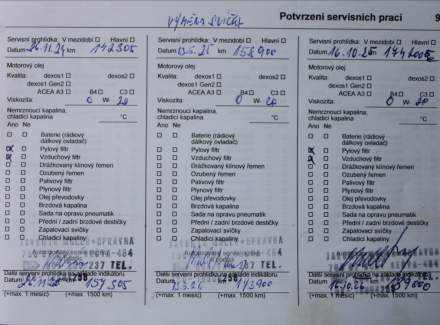 VÝMĚN SVÍČEK
Potvrzení servisních prací 9
Servisní prohlídka: V mezidobí Hlavní
Datum 26.11.24 km 142305
Motorový olej
Kvalita: dexos1 dexos2
dexos1 Gen2
ACEA A3 B4 C3
Viskozita 0 W- 20
Nemrznoucí kapalina,
chladicí kapalina °C
Ano Ne
Baterie (rádiový
dálkový ovladač)
Pylový filtr
Vzduchový filtr
Drážkovaný klínový řemen
Ozubený řemen
Palivový filtr
Plynový filtr
Olej převodovky
Brzdová kapalina
Sada na opravu pneumatik
Přední / zadní brzdové destičky
Zapalovací svíčky
Chladicí kapaliny
237 TEL.
Další servisní prohlídka na základě indikátoru
Datum 26.11.25 157305
(+max. 1 měsíc) (+max. 1500 km)
Servisní prohlídka: V mezidobí Hlavní
Datum 13.5.25 km 158900
Motorový olej
Kvalita: dexos1 dexos2
dexos1 Gen2
ACEA A3 B4 C3
Viskozita 0 W- 20
Nemrznoucí kapalina,
chladicí kapalina °C
Ano Ne
Baterie (rádiový
dálkový ovladač)
Pylový filtr
Vzduchový filtr
Drážkovaný klínový řemen
Ozubený řemen
Palivový filtr
Plynový filtr
Olej převodovky
Brzdová kapalina
Sada na opravu pneumatik
Přední / zadní brzdové destičky
Zapalovací svíčky
Chladicí kapaliny
237 TEL.
Další servisní prohlídka na základě indikátoru
Datum 13.5.26 173900
(+max. 1 měsíc) (+max. 1500 km)
Servisní prohlídka: V mezidobí Hlavní
Datum 16.10.25 km 174000
Motorový olej
Kvalita: dexos1 dexos2
dexos1 Gen2
ACEA A3 B4 C3
Viskozita 0 W- 20
Nemrznoucí kapalina,
chladicí kapalina °C
Ano Ne
Baterie (rádiový
dálkový ovladač)
Pylový filtr
Vzduchový filtr
Drážkovaný klínový řemen
Ozubený řemen
Palivový filtr
Plynový filtr
Olej převodovky
Brzdová kapalina
Sada na opravu pneumatik
Přední / zadní brzdové destičky
Zapalovací svíčky
Chladicí kapaliny
237 TEL.
Další servisní prohlídka na základě indikátoru
Datum 16.10.26 189000
(+max. 1 měsíc) (+max. 1500 km)